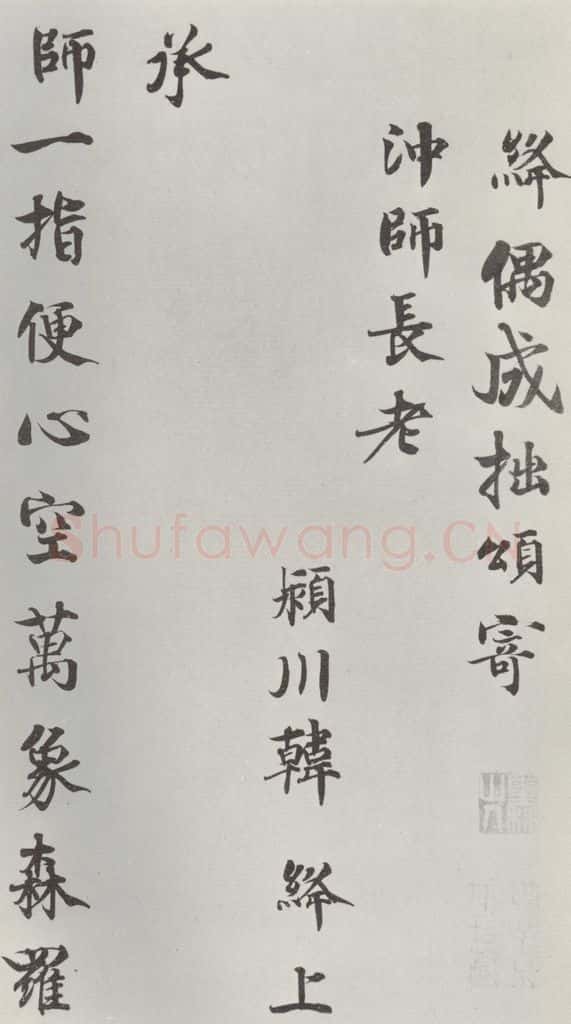 絳偶成拙頌寄
沖師長老
潁川韓絳上
承
師一指便心空萬象森羅
Shufawang.CN